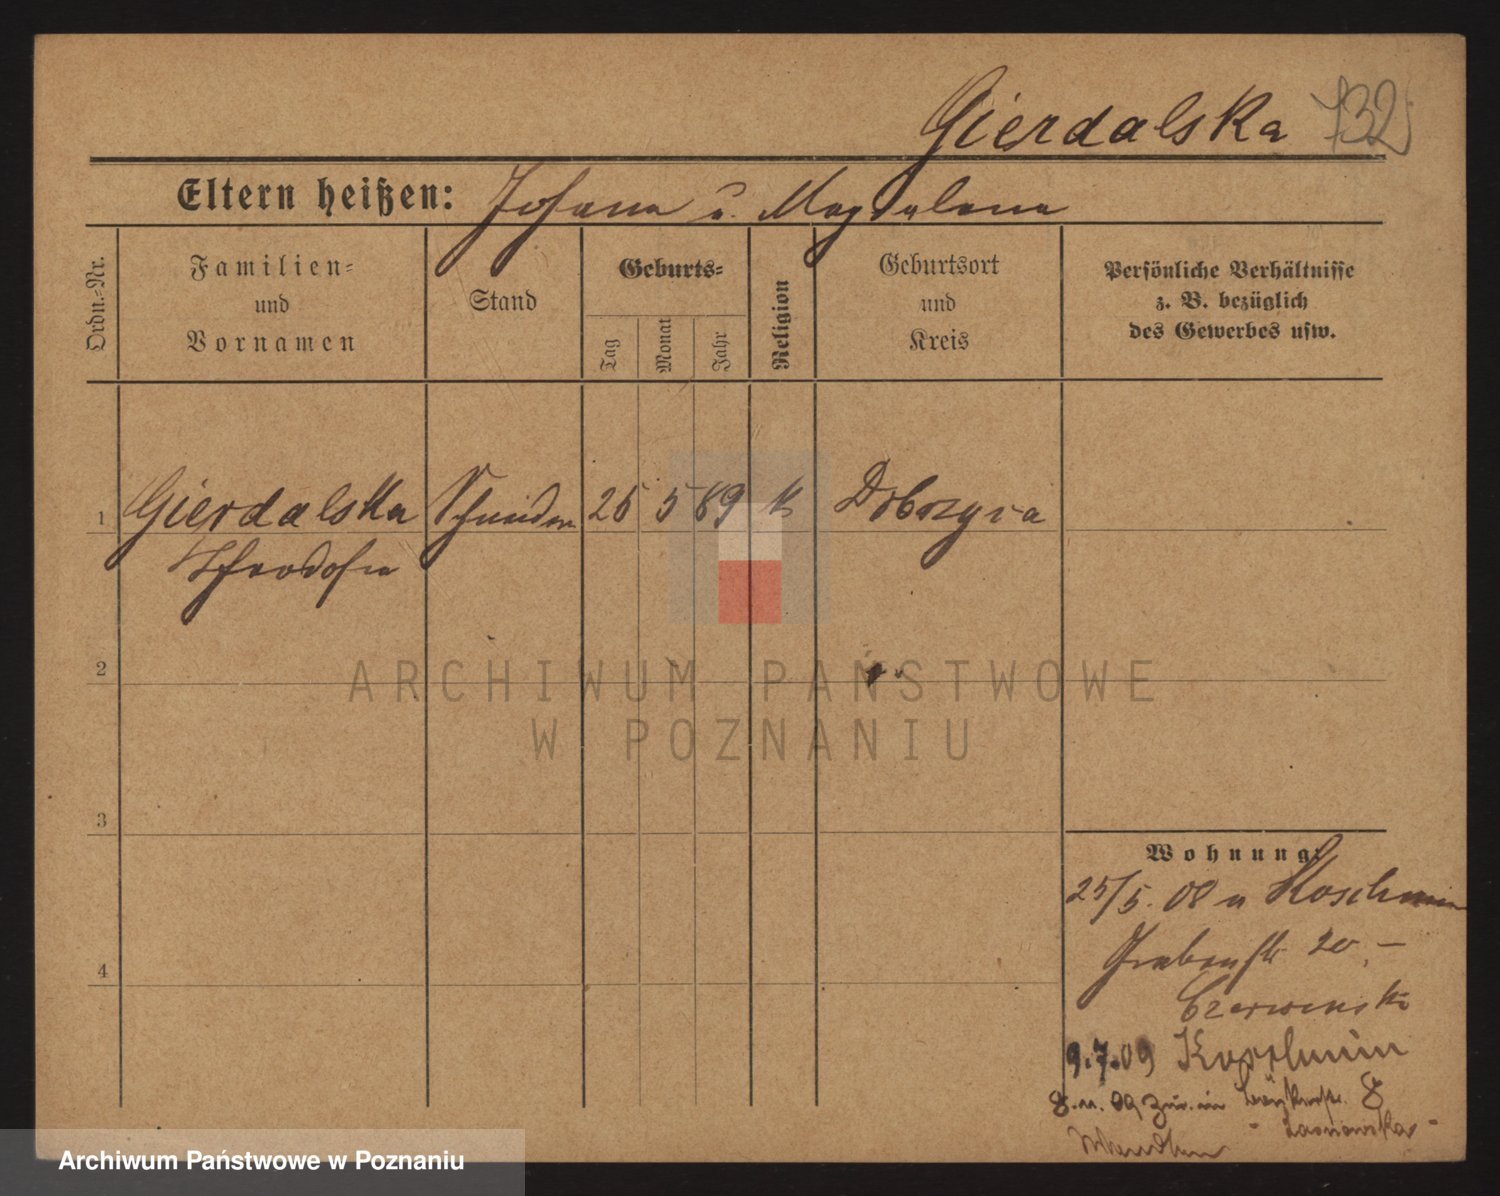 Gierdalska 732
Eltern heißen: Johann u. Magdalena
Ordn.-Nr.
Familien-
und
Vornamen
Stand
Geburts-
Tag
Monat
Jahr
Religion
Geburtsort
und
Kreis
Persönliche Verhältnisse
z. B. bezüglich
des Gewerbes usw.
1 Gierdalska 26 5 89 k
Theodosia
2
3
4
Wohnung:
25/5. 08 n Koschmin
Grabenstr 20, -
Czerwinski
9.7.09 Koschmin
8.11.09 8
ARCHIWUM PAŃSTWOWE
W POZNANIU
Archiwum Państwowe w Poznaniu